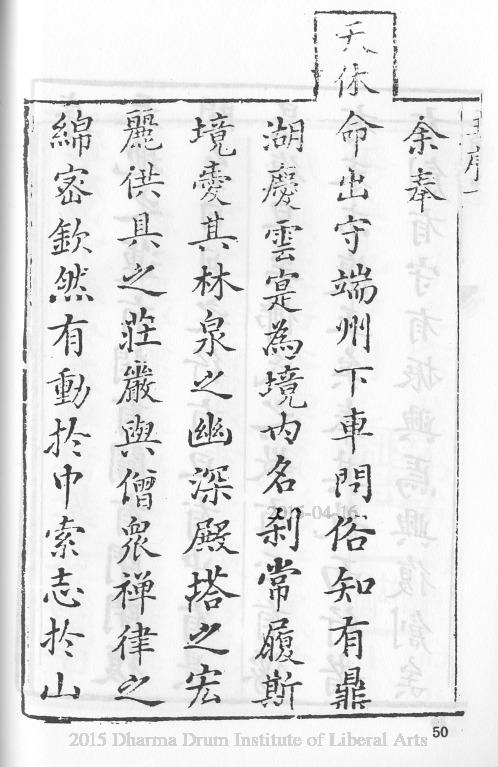 余奉
天休命出守端州下車問俗知有鼎
湖慶雲寔為境内名刹常履斯
境愛其林泉之幽深殿塔之宏
麗供具之莊嚴與僧眾禪律之
綿密欽然有動扵中索志扵山
50
2015 Dharma Drum Institute of Liberal Arts